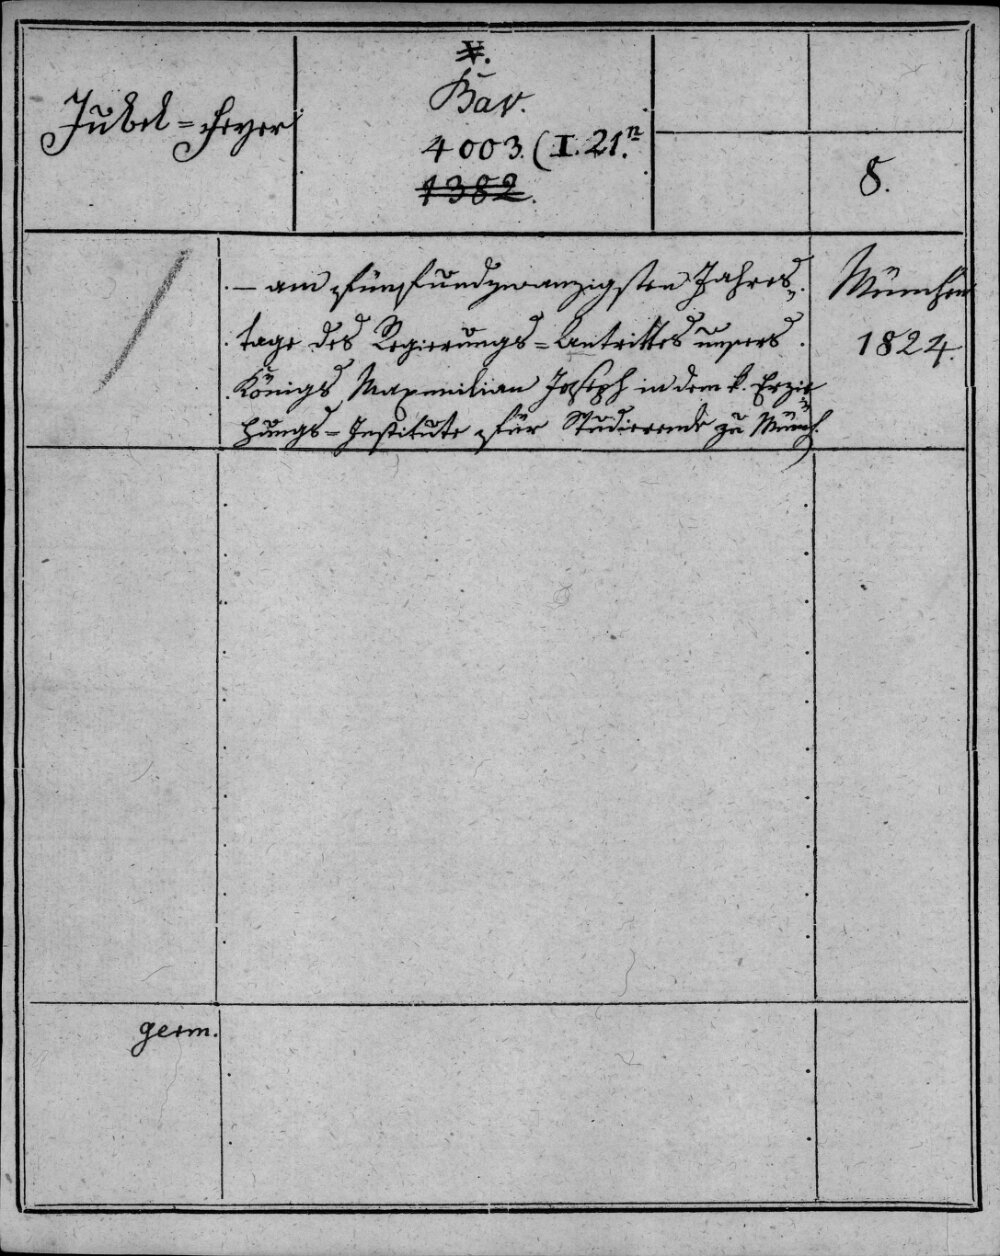 Jubel=Feyer
V.
Bav.
4003. (I. 21.n
1382.
8.
– am fünfundzwanzigsten Jahres-
tage des Regierungs=Antrittes unsers
Königs Maximilian Joseph in dem k. Erzie
hungs=Institute für Studierende zu Münch.
München
1824.
germ.